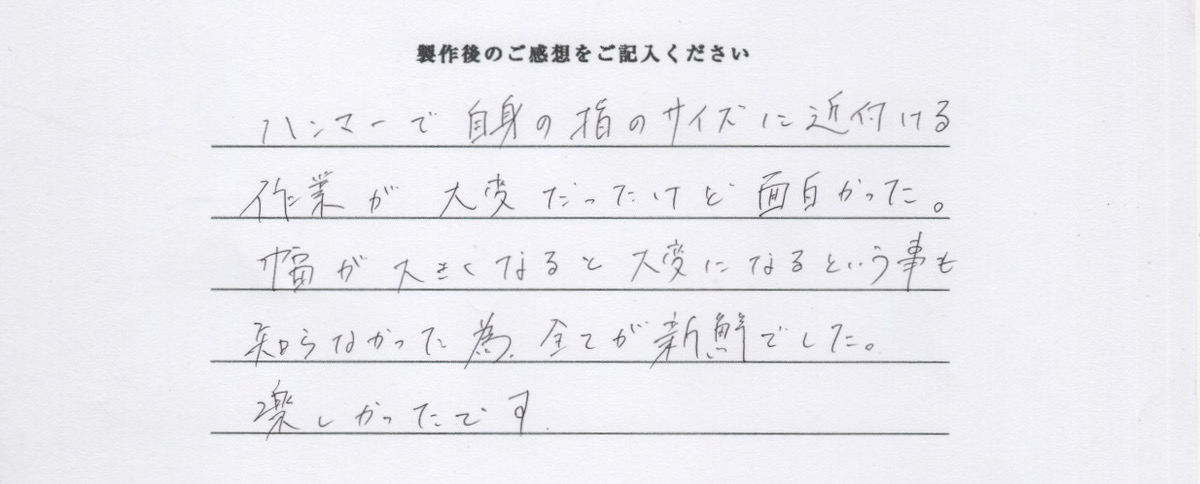 製作後のご感想をご記入ください
ハンマーで自身の指のサイズに近付ける
作業が大変だったけど面白かった。
幅が大きくなると大変になるという事も
知らなかった為、全てが新鮮でした。
楽しかったです